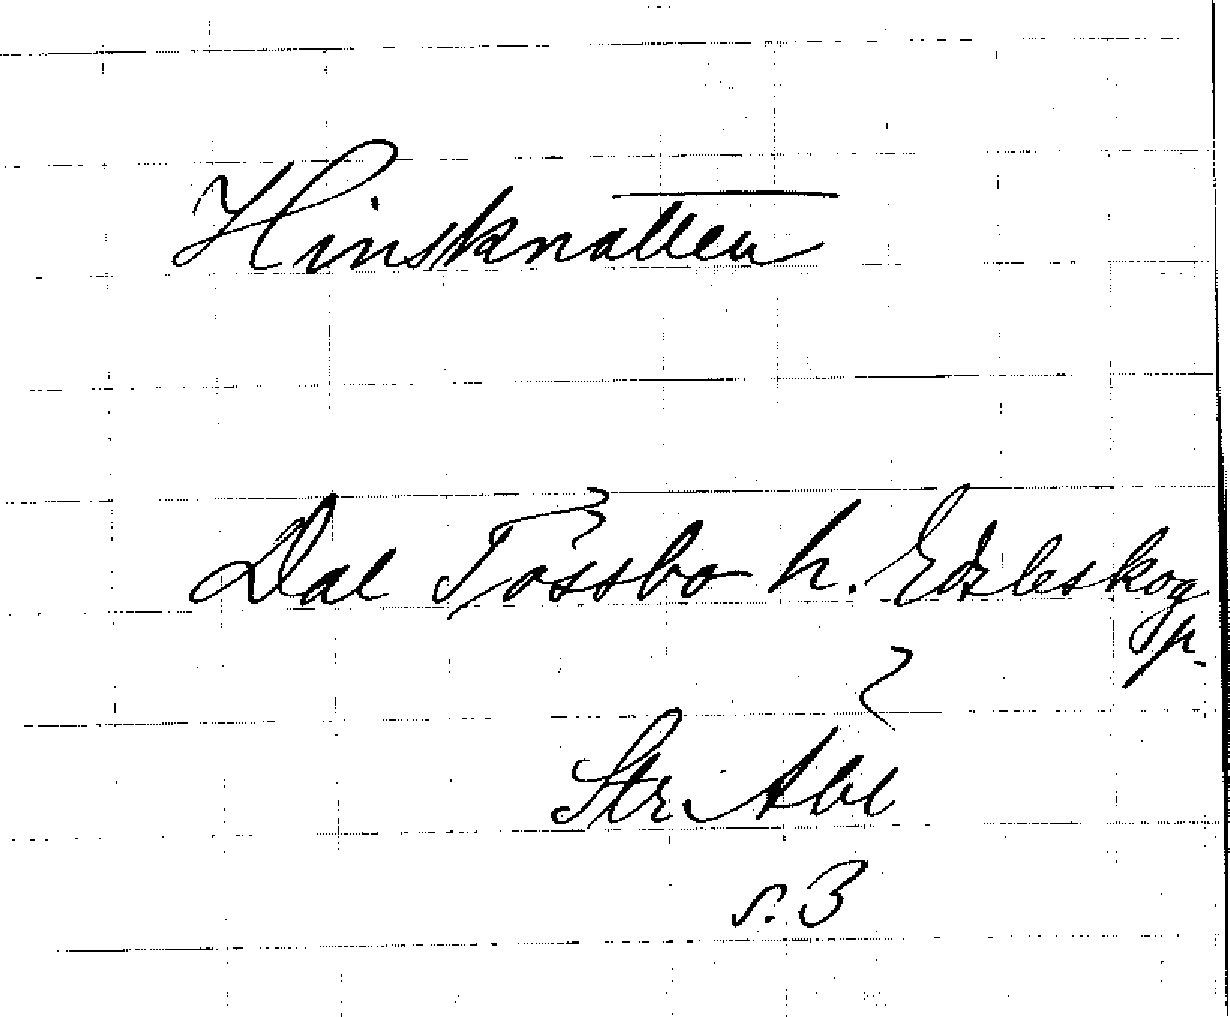 Hinsknatten
Dal Tössbo h. Edsleskog
p.
Str. Abl
s. 3